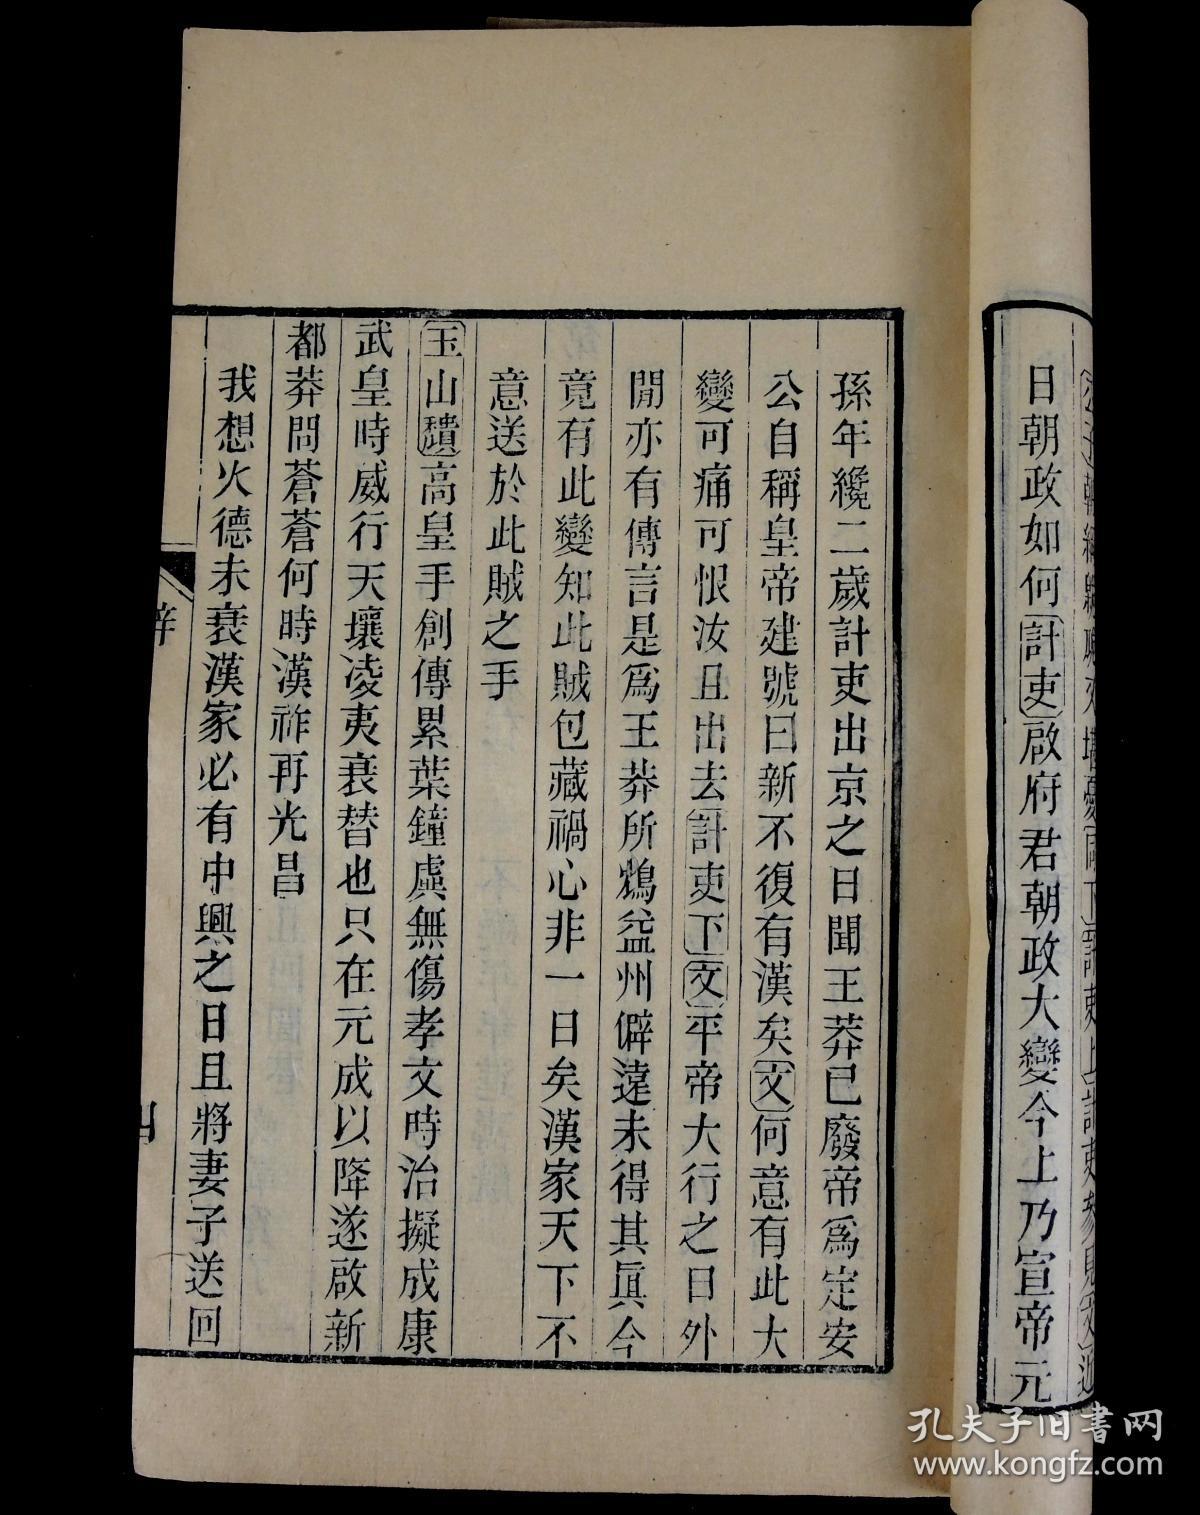 日朝政如何計吏啟府君朝政大變今上乃宣帝元
孫年纔二歲計吏出京之日聞王莽已廢帝爲定安
公自稱皇帝建號曰新不復有漢矣文何意有此大
變可痛可恨汝且出去計吏下文平帝大行之日外
閒亦有傳言是爲王莽所鴆益州僻遠未得其眞今
竟有此變知此賊包藏禍心非一日矣漢家天下不
意送於此賊之手
玉山穨高皇手創傳累葉鐘虡無傷孝文時治擬成康
武皇時威行天壤凌夷衰替也只在元成以降遂啟新
都莽問蒼蒼何時漢祚再光昌
我想火德未衰漢家必有中興之日且將妻子送回
四
孔夫子旧书网
www.kongfz.com